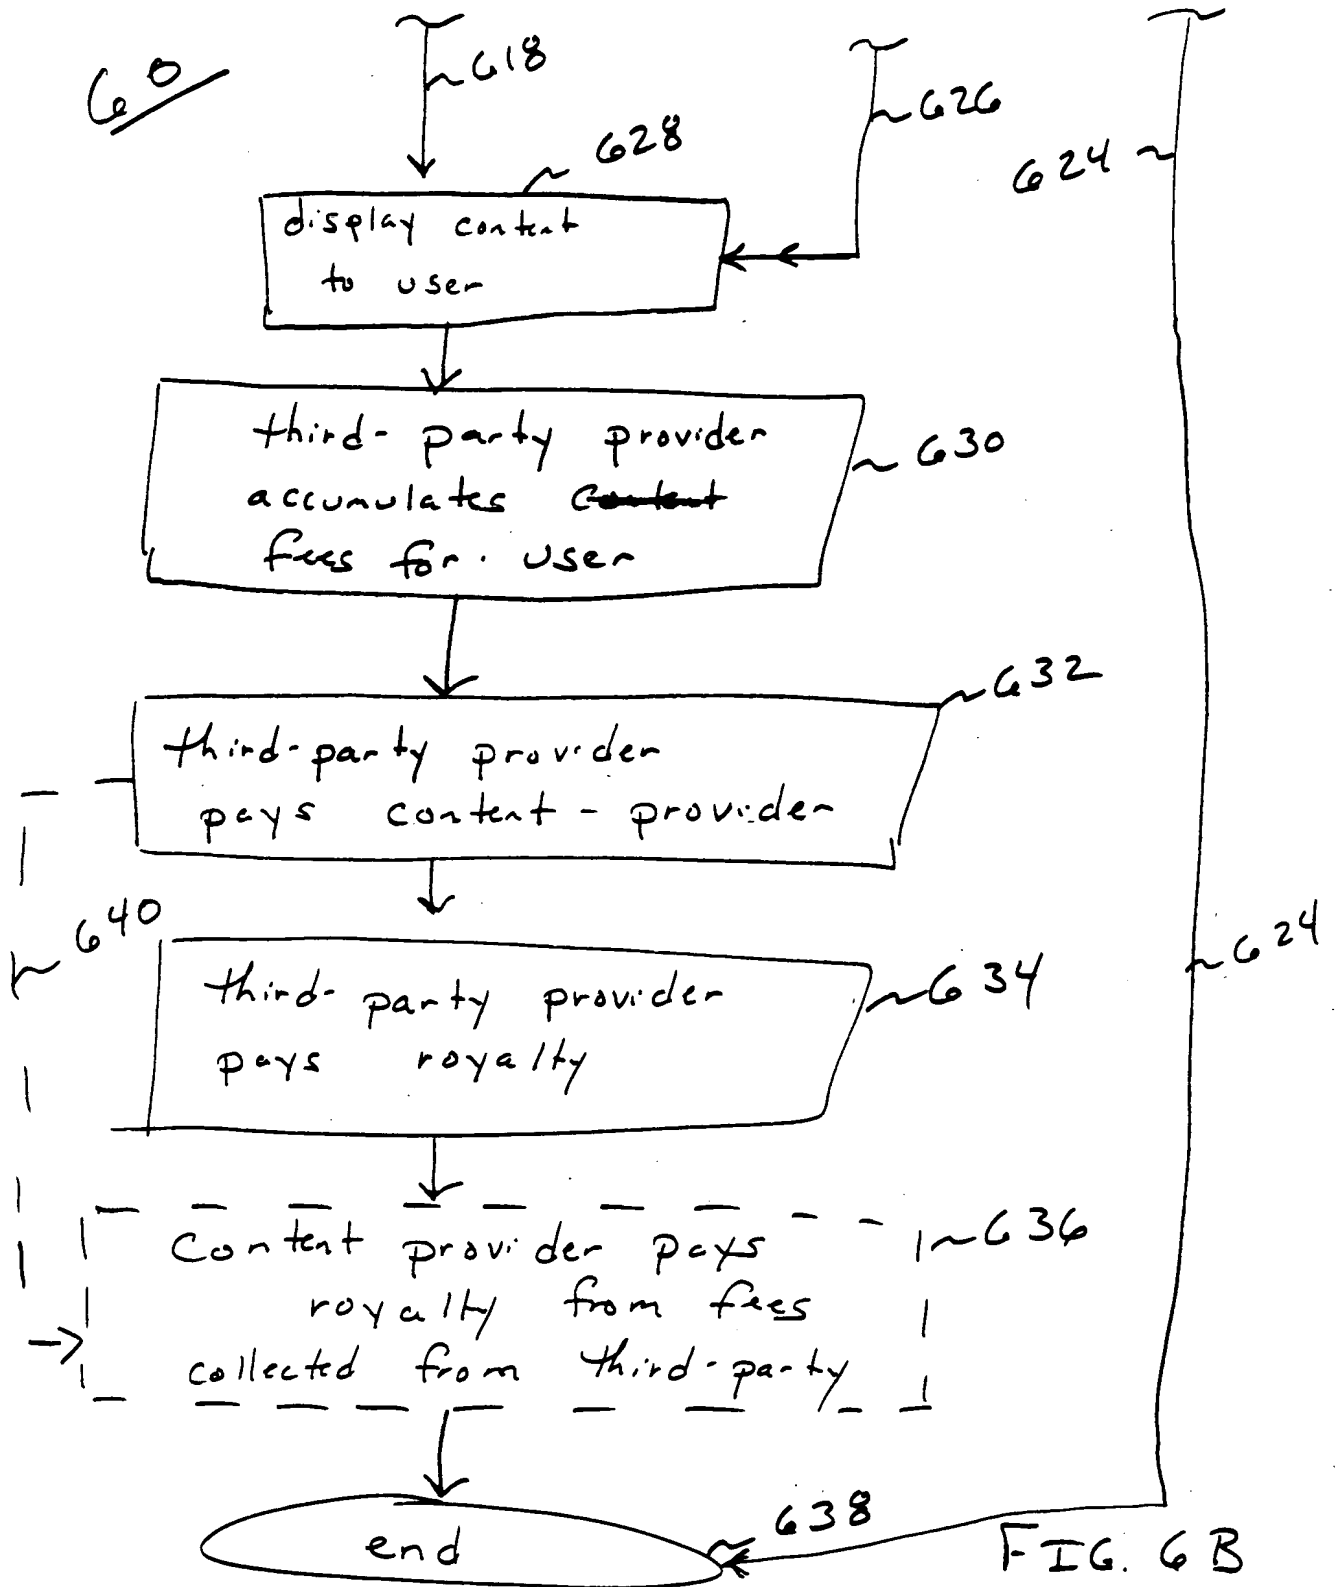 60
618
626
628
624
display content
to user
third-party provider
accumulates content
fees for user
630
632
third-party provider
pays content-provider
640
624
third-party provider
pays royalty
634
Content provider pays
royalty from fees
collected from third-party
636
638
end
FIG. 6B